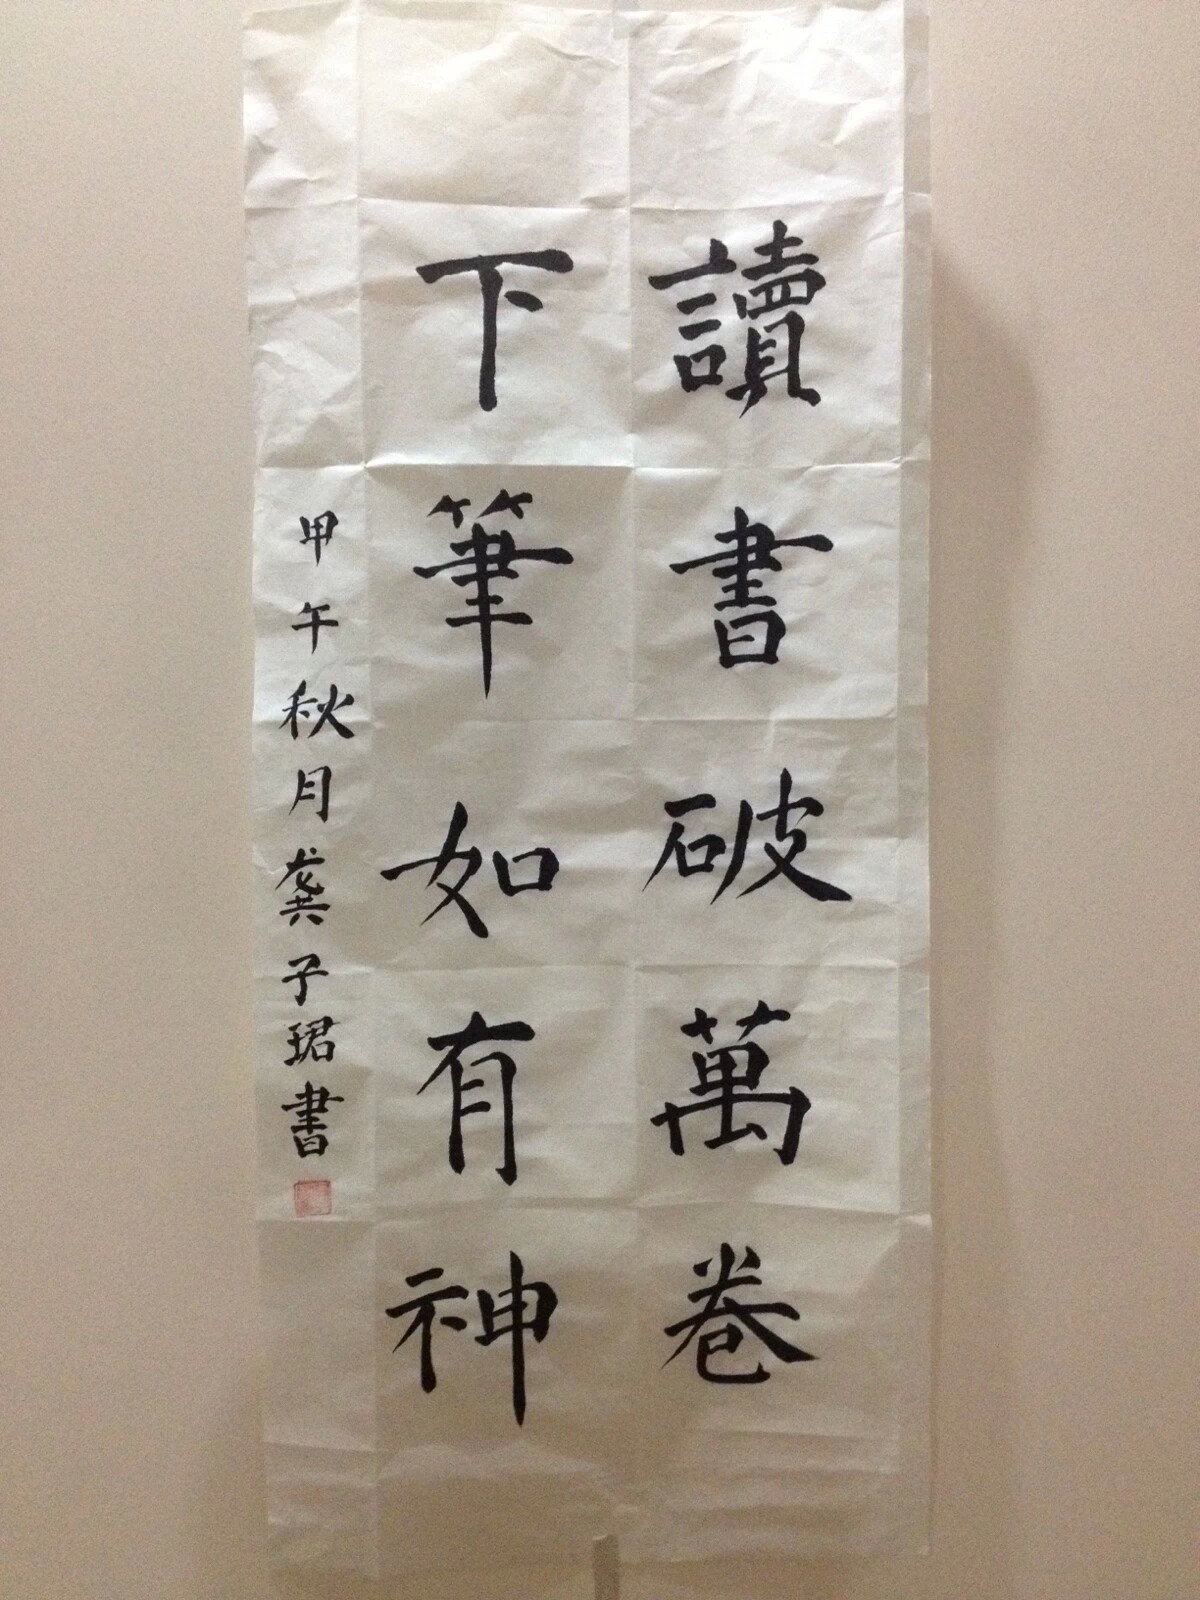 讀書破萬卷
下筆如有神
甲午秋月龔子珺書